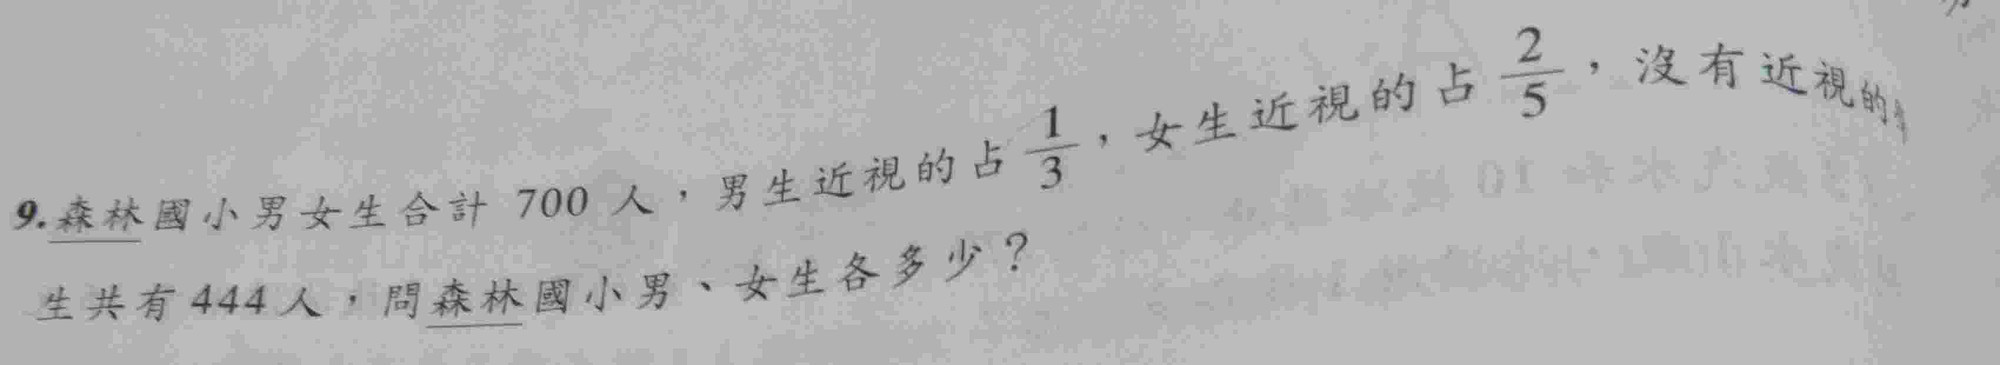 9.森林國小男女生合計 700 人，男生近視的占 1/3，女生近視的占 2/5，沒有近視的
生共有 444 人，問森林國小男、女生各多少？